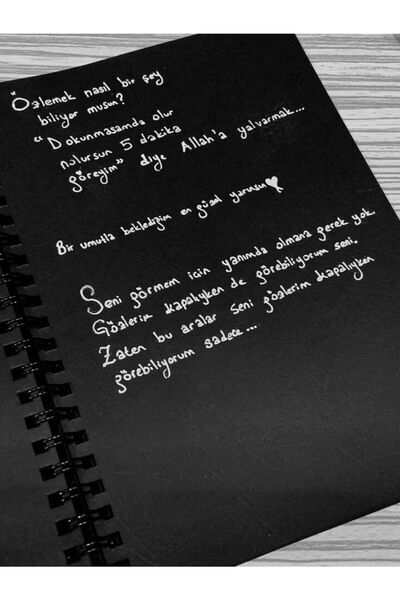 Özlemek nasıl bir şey
biliyor musun?
"Dokunmasamda olur
nolursun 5 dakika
göreyim" diye Allah'a yalvarmak...
Bir umutla beklediğim en güzel yarınsın
Seni görmem için yanımda olmana gerek yok.
Gözlerim kapalıyken de görebiliyorum seni.
Zaten bu aralar seni gözlerim kapalıyken
görebiliyorum sadece...